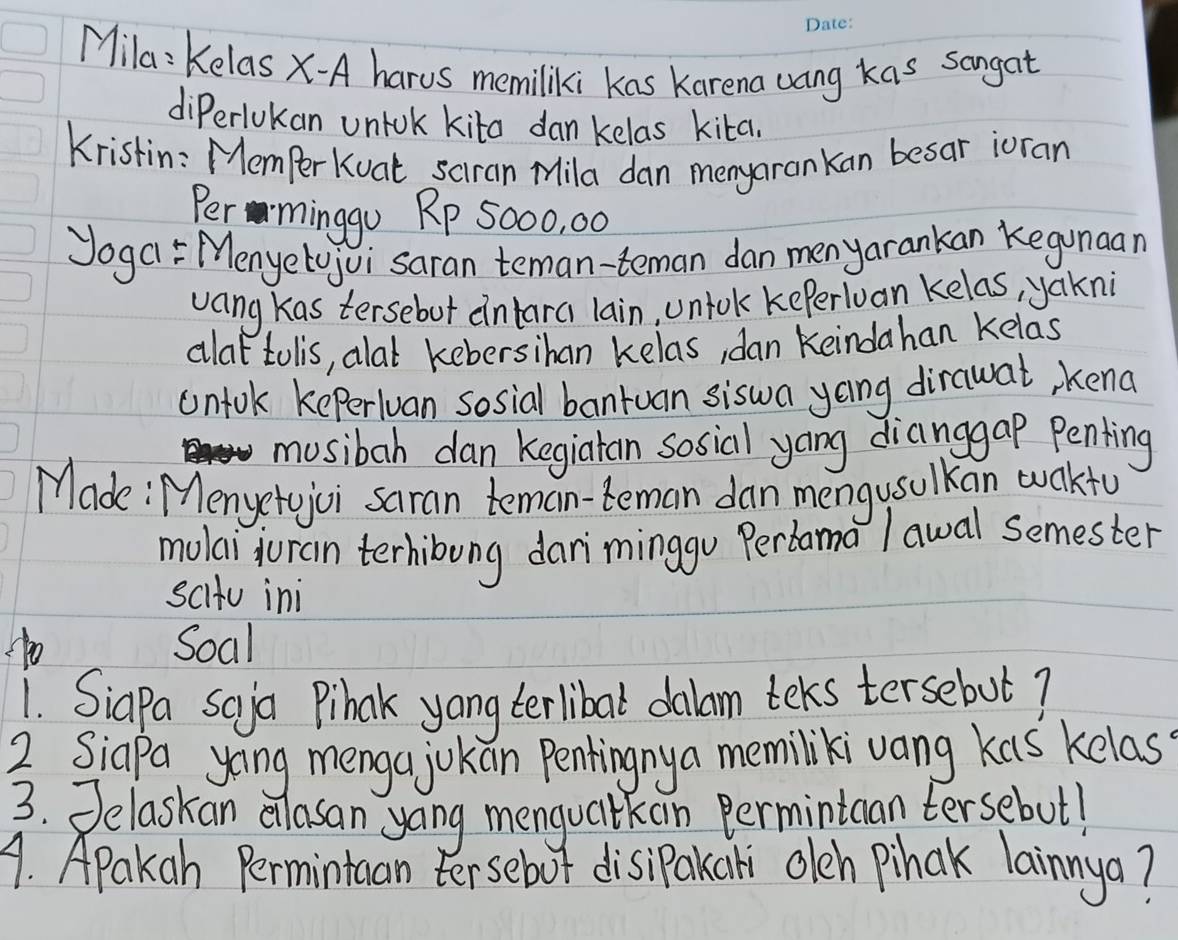 Date:
Mila: Kelas X-A harus memiliki kas karena uang kas sangat
diperlukan untuk kita dan kelas kita.
Kristin: Memperkuat saran Mila dan menyarankan besar iuran
Per minggu Rp 5000,00
Yoga: Menyetujui saran teman-teman dan menyarankan kegunaan
uang kas tersebut antara lain, untuk keperluan kelas, yakni
alat tulis, alat kebersihan kelas, dan keindahan kelas
untuk keperluan sosial bantuan siswa yang dirawat, kena
musibah dan kegiatan sosial yang dianggap penting
Made: Menyetujui saran teman-teman dan mengusulkan waktu
mulai iuran terhibung dari minggu pertama / awal semester
satu ini
Soal
1. Siapa saja pihak yang terlibat dalam teks tersebut?
2 Siapa yang mengajukan pentingnya memiliki uang kas kelas?
3. Jelaskan alasan yang menguatkan permintaan tersebut!
4. Apakah permintaan tersebut disipakati oleh pihak lainnya?